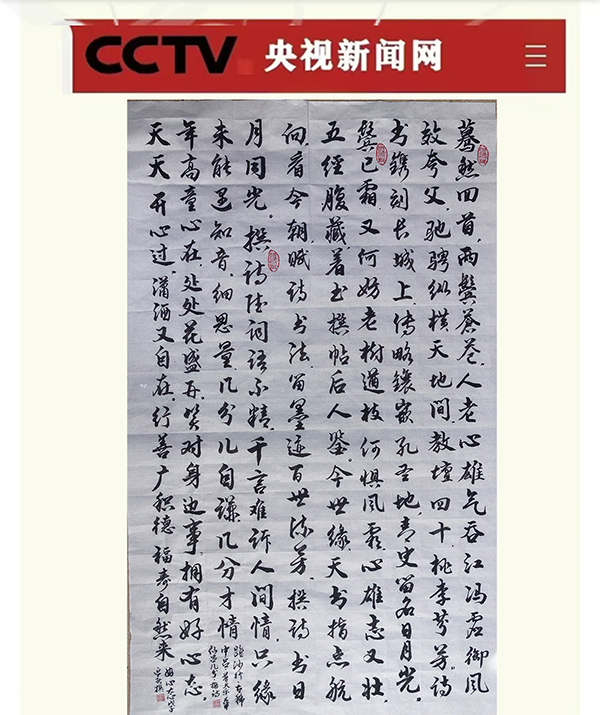 CCTV 央视新闻网
蓦然回首，两鬓苍苍。人老心雄气吞江冯虚御风
效夸父，驰骋纵横天地间，教坛四十桃李芳，诗
书镌刻长城上，传略镶嵌孔圣地，青史留名日月光。
鬓已霜，又何妨，老树道枝何惧风霜，心雄志又壮
五经腹藏著书撰帖后人鉴。今世缘，天书指点航
向，看今朝，赋诗书法留墨迹百世流芳，撰诗书日
月同光。撰诗陡词语不精，千言难诉人间情，只缘
未能遇知音，细思量几分儿自谦几分才情
年高童心在，处处花盛开，笑对身边事，拥有好心态。
天天开心过，潇洒又自在，行善广积德福寿自然来